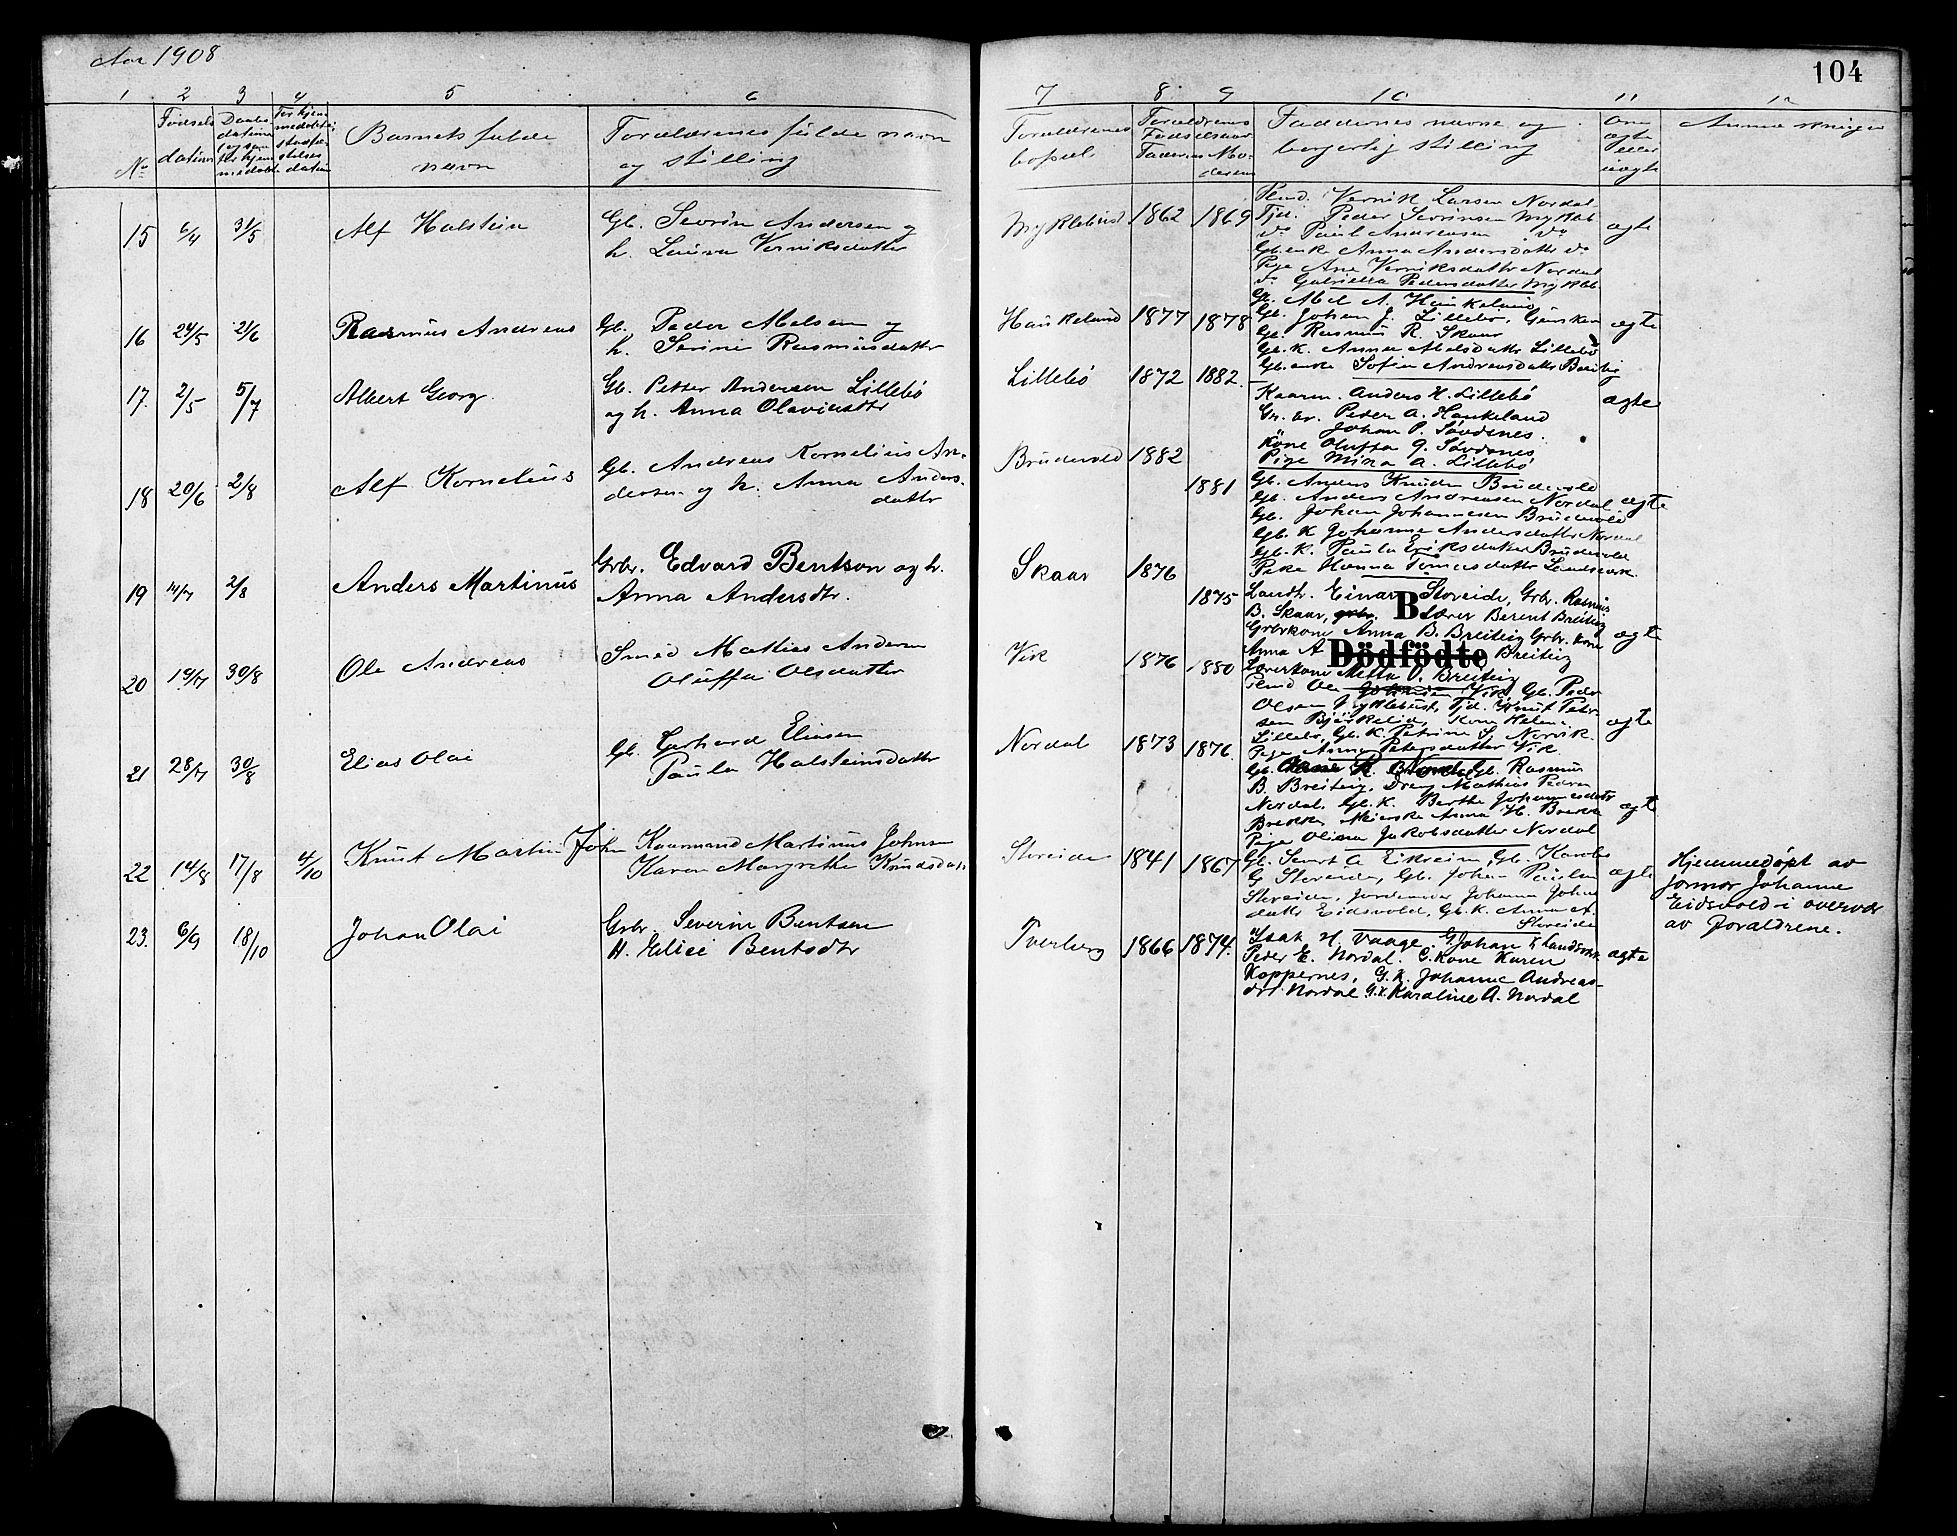 Aar 1908
104
1 2 3 4 5 6 7 8 9 10 11 12
No
Fødsels datum
Daabs datum
Barnets fulde navn
Forældrenes fulde navn og stilling
Forældrenes bopæl
Forældrenes Fødselsaar
Faderens Moderens
Faddernes navne og borgerlig stilling
Om ægte eller uægte
Anmærkninger
15 6/4 31/5 Alf Halstein
Gb. Severin Andersen og
h. Laura Verniksdatter
Myklebust 1862 1869
Vernik Larsen Nordal
Tjd. Peder Severinsen Mykleb
do Paul Andreasen do
Gb. enke Anna Andersdattr do
Pige Ane Verniksdatter Nordal
do Gabriella Pedersdatter Mykleb
ægte
16 24/5 21/6 Rasmus Andreas
Gb. Peder Abelsen og
h. Serine Rasmusdatter
Haukeland 1877 1878
Gb. Abel A. Haukeland
Gb. Johan J. Lillebø,
Gb. Rasmus R. Skaar
Gb. K. Anna Abelsdattr Lillebø
Gb. enke Sofie Andreasdattr Breiteig
ægte
17. 2/5 5/7 Albert Georg.
Gb. Petter Andersen Lillebø
og h. Anna Olavidattr
Lillebø 1872 1882.
Kaarm. Anders K. Lillebø
Gr. br. Peder A. Haukeland
Johan P. Søvdsnes.
Kone Oluffa G. Søvdsnes
Pige Mina A. Lillebø
ægte
18 20/6 2/8 Alf Kornelius
Gb. Andreas Kornelius An-
dersen og h. Anna Anders-
datter
Brudevold 1882 1881
Gb. Anders Knudsen Brudevold
Gb. Anders Andreasen Nordal
Gb. Johan Johannesen Brudevold
Gb. K Johanne Andersdatter Nordal
Gb. K. Paula Eriksdatter Brudevold
Pike Hanna Tomasdatter Landsverk
ægte
19 14/7 2/8 Anders Martinus
Grbr. Edvard Bentson og h.
Anna Andersdtr.
Skaar 1876 1875
Landh. Einar Storeide, Grbr. Rasmus
B. Skaar, grbr. Lærer Berent Breiteig
Grbrkone Anna B. Breiteig Grbr. kone
Anna A Breiteig
Lærerkone Metta O. Breiteig
ægte
B.
Dödfödte
20 19/7 30/8 Ole Andreas
Smed Mathias Andersen
Oluffa Olsdatter
Vik 1876 1880
Ole Vik, Gb. Peder
Olsen Myklebust, Tjd. Knut Peter-
sen Bjørkelid, Kone Helene
Lillebø, Gb. K. Petrine S. Nervik
Pige Anna Petersdatter Vik
ægte
21 28/7 30/8 Elias Olai
Gb. Gerhard Eliasen
Paula Halsteinsdattr
Nordal 1873 1876.
Gb. Rasmus
B. Breiteig, Dreng Mathias Pedersen
Nordal, Gb. K. Berthe Johannesdatr
Brekke, Meierske Anna H. Brekke
Pige Olina Jakobsdatter Nordal
ægte
22 14/8 17/8 4/10 Knut Martin John
Kaarmand Martinus Johnsen
Karen Margrethe Knudsdatr
Storeide 1841 1867
Gb. Senert A Eikreim, Gb. Karolus
G Storeide, Gb. Johan Paulsen
Storeide, Jordemor Johanne Johns
datter Eidsvold, Gb. K. Anna A.
Storeide
ægte
Hjemmedøpt av
formor Johanne
Eidsvold i overvær
av foraldrene.
23. 6/9 18/10 Johan Olai
Grbr. Severin Bentsen
H. Elise Bentsdtr
Tverberg 1866 1874.
Isak H. Vaage. G. Johan K Landsverk
Peder E. Nordal. G. Kone Karen
Koppernes, G. K. Johanne Andreas-
dtr. Nordal. G. K. Karoline A. Nordal
ægte